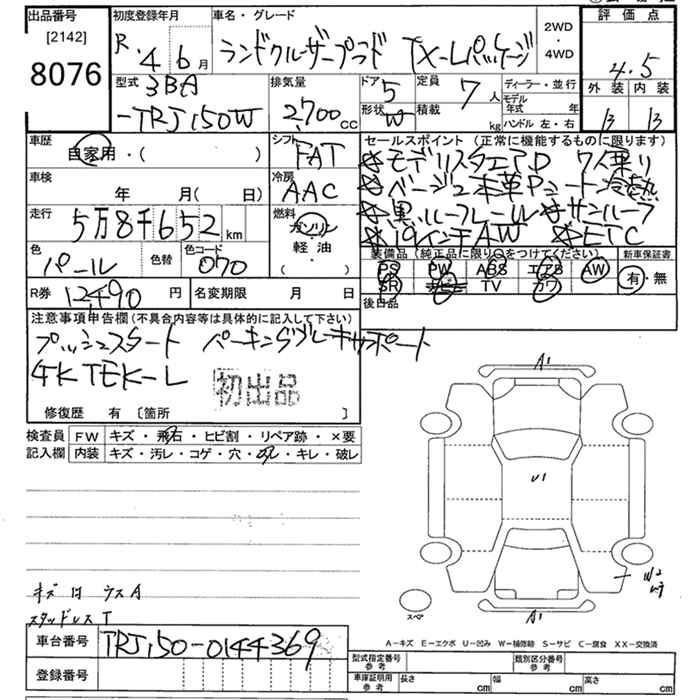 出品番号
[2142]
8076
初度登録年月
R. 4 6月
車名・グレード
ランドクルーザープラド TX-Lパッケージ
2WD
・
4WD
評価点
4.5
外装 内装
B B
型式
3BA
-TRJ150W
排気量
2,700cc
ドア 5
定員 7人
形状 W
積載 kg
ディーラー・並行
モデル年式 年
ハンドル 左・右
車歴
自家用・( )
シフト
FAT
車検
年 月( 日)
冷房
AAC
走行
5万8千652km
燃料
ガソリン
軽油
・( )
色
パール
色替
色コード
070
R券 12,490円
名変期限 月 日
セールスポイント(正常に機能するものに限ります)
☆モデリスタエアロ 7人乗り
☆ベージュ本革Pシート冷熱
☆黒ルーフレール☆サンルーフ
☆19インチAW ☆ETC
装備品(純正品に限り○をつけてください)
PS PW ABS エアB AW
SR ナビ TV カワ
新車保証書
有・無
後日品
注意事項申告欄(不具合内容等は具体的に記入して下さい)
プッシュスタート パーキングブレーキサポート
4K TEK-L
初出品
修復歴 有 〔箇所 〕
検査員記入欄
FW キズ・飛石・ヒビ割・リペア跡・×要
内装 キズ・汚レ・コゲ・穴・スレ・キレ・破レ
A1
U1
W2
A1
スペア
キズ内 ウスA
スタッドレスT
A-キズ E-エクボ U-凹み W-補修跡 S-サビ C-腐食 XX-交換済
車台番号
TRJ150-0144369
登録番号
型式指定番号 参考
類別区分番号 参考
車庫証明用 参考
長さ cm
幅 cm
高さ cm